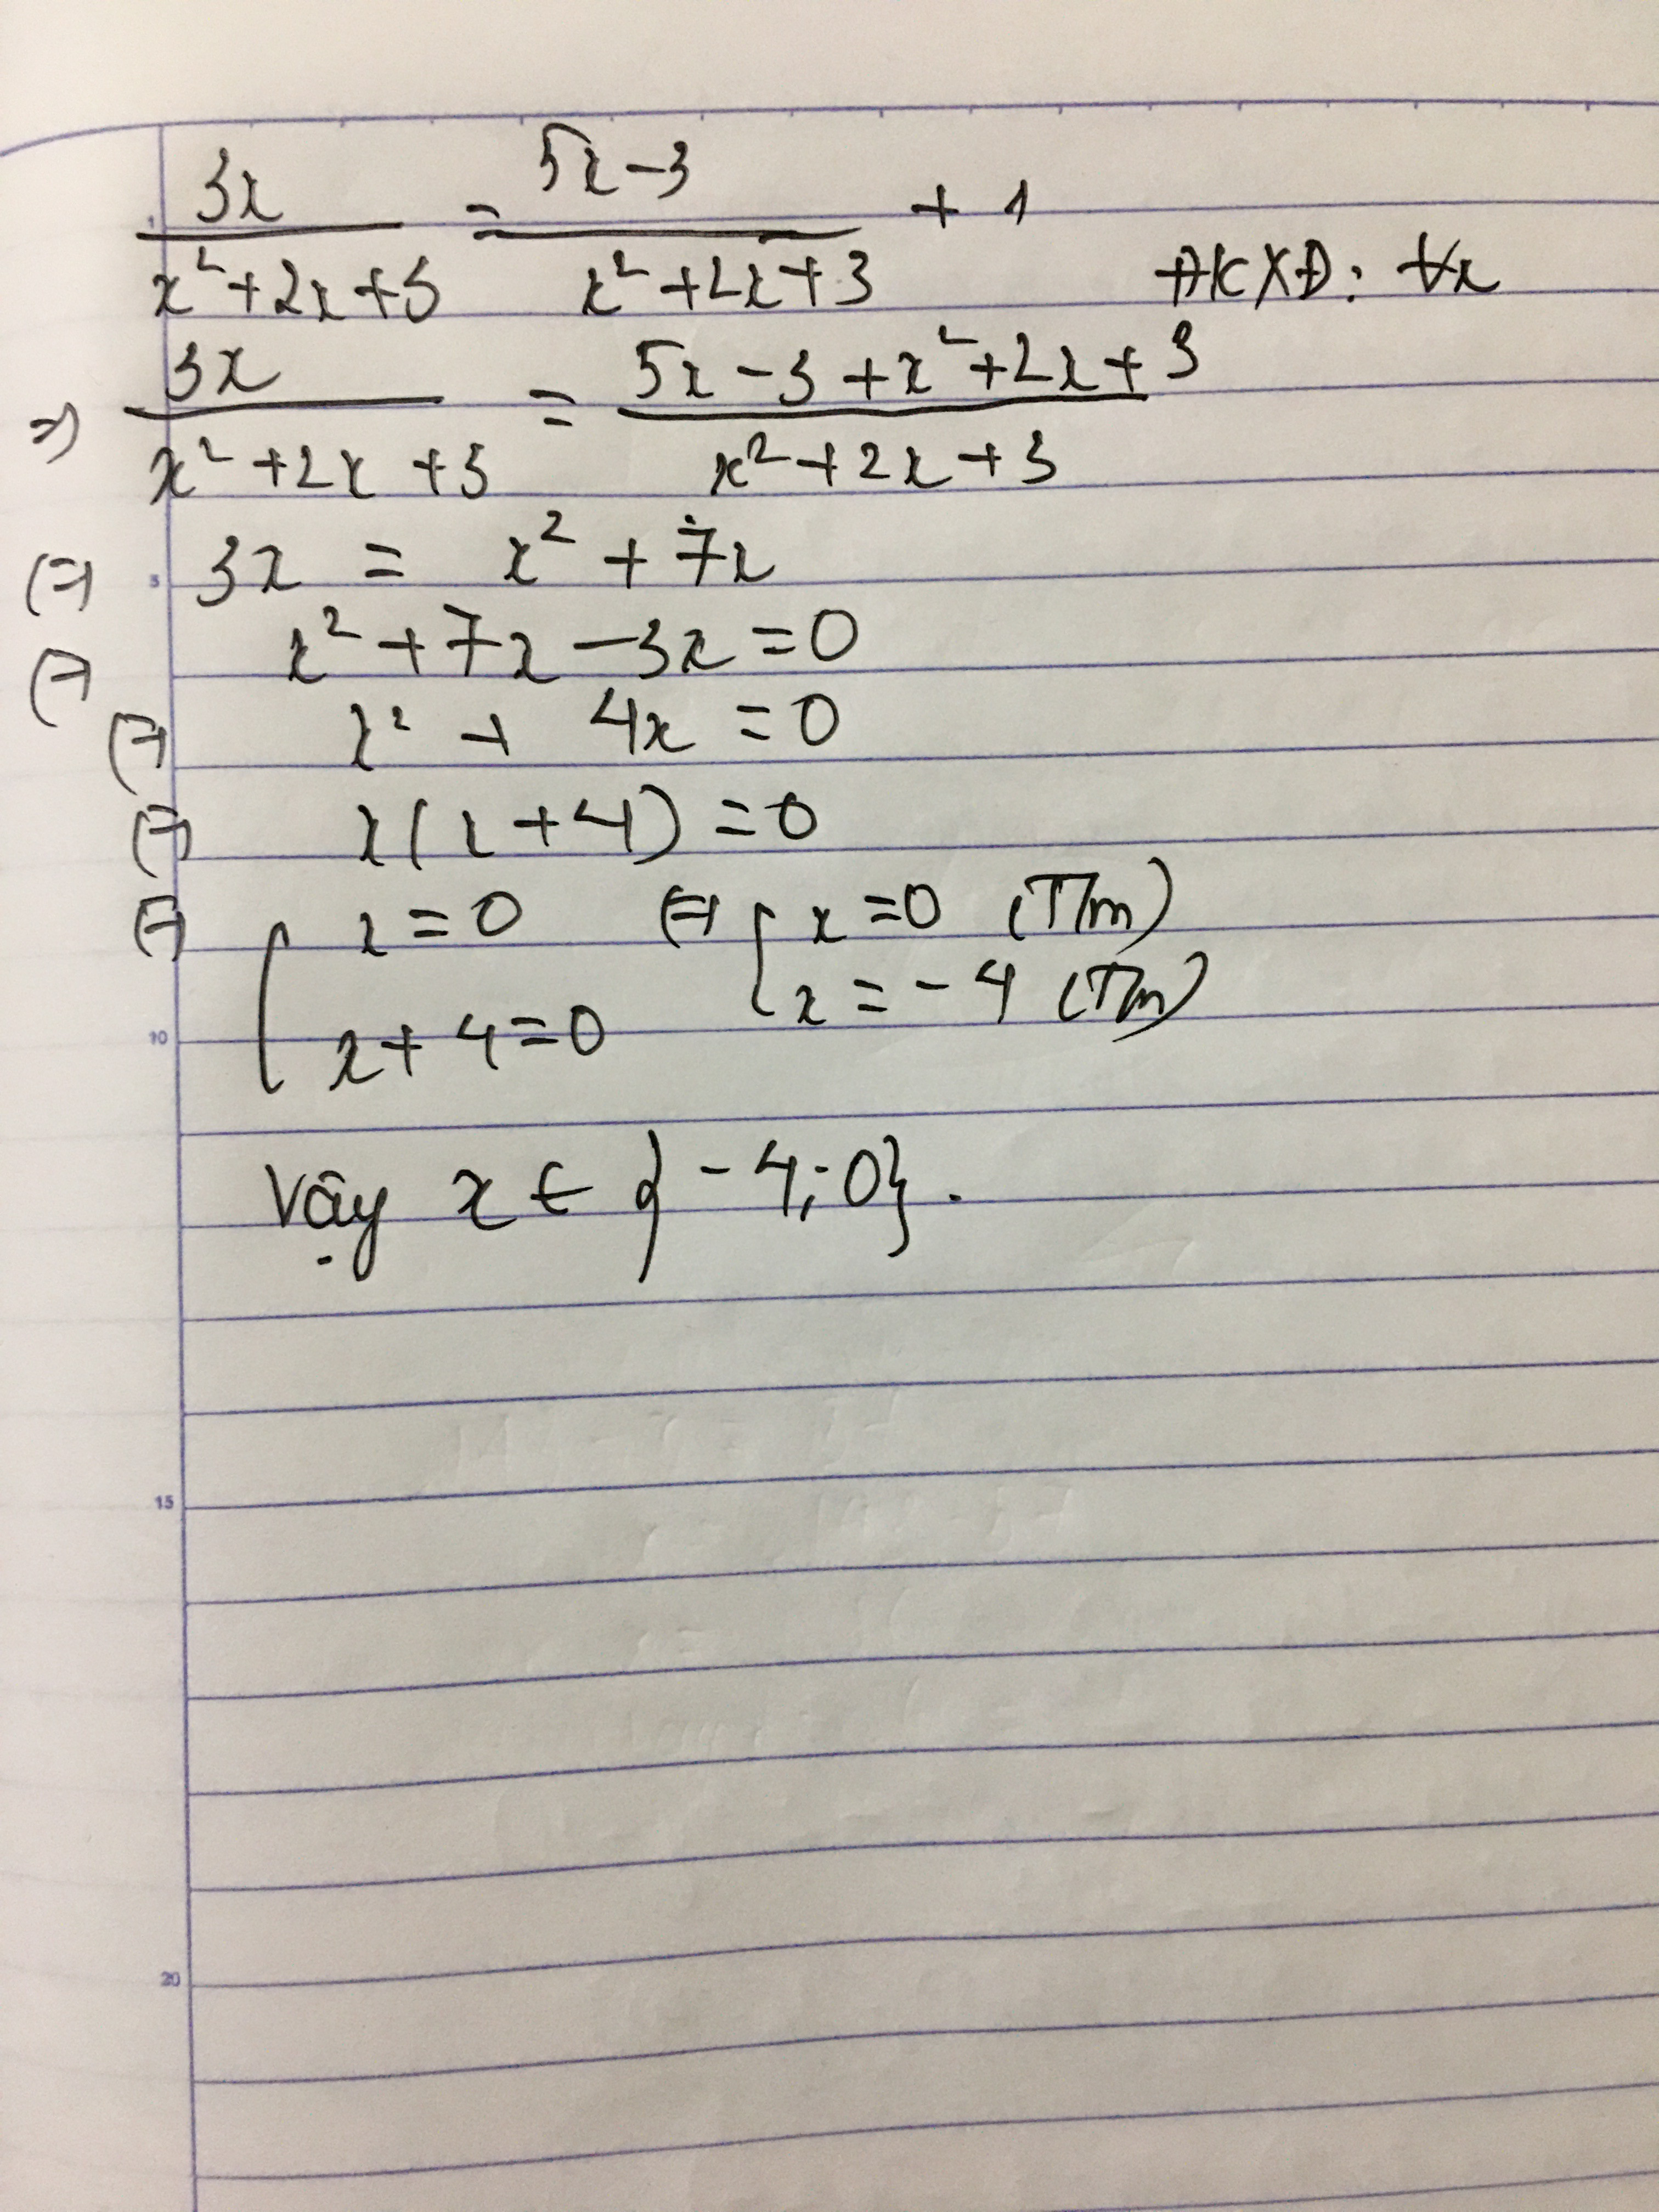 3x/(x²+2x+3) = (5x-3)/(x²+2x+3) + 1 ĐKXĐ: ∀x
=> 3x/(x²+2x+3) = (5x-3+x²+2x+3)/(x²+2x+3)
(=) 3x = x² + 7x
(=) x² + 7x - 3x = 0
(=) x² + 4x = 0
(=) x(x+4) = 0
(=) [ x = 0 (=) [ x = 0 (T/m)
x + 4 = 0 x = -4 (T/m)
Vậy x ∈ {-4; 0}.
5
10
15
20